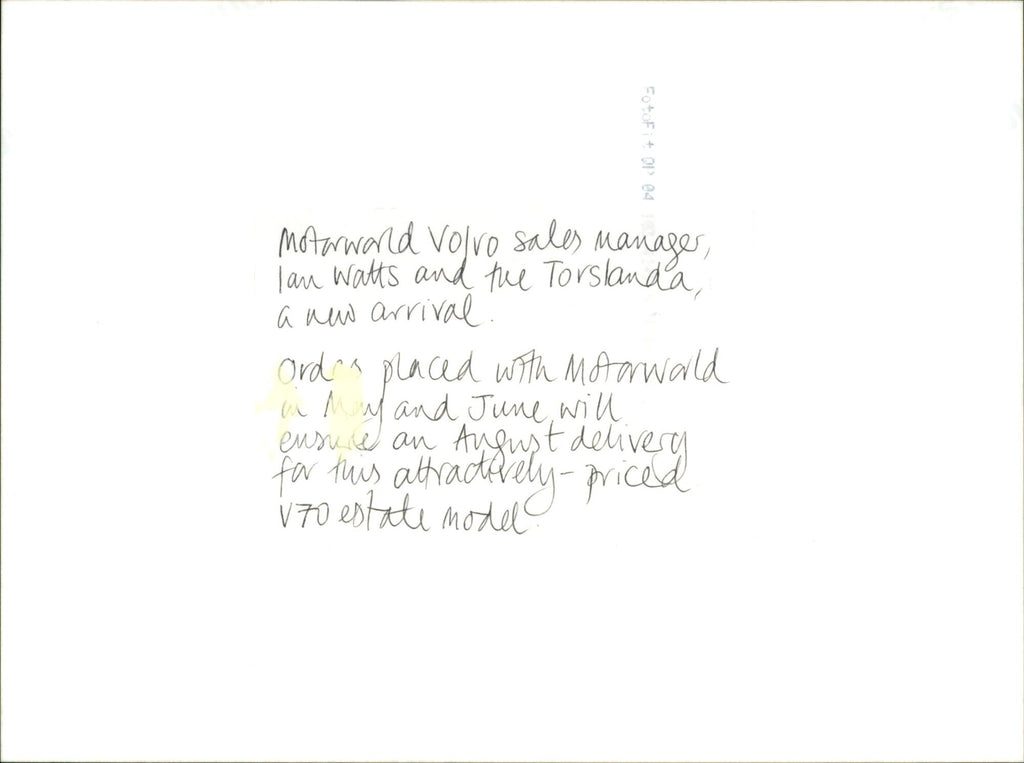 FotoFit OP 04
Motorworld Volvo sales manager,
Ian Watts and the Torslanda,
a new arrival.
Orders placed with Motorworld
in May and June will
ensure an August delivery
for this attractively-priced
V70 estate model.